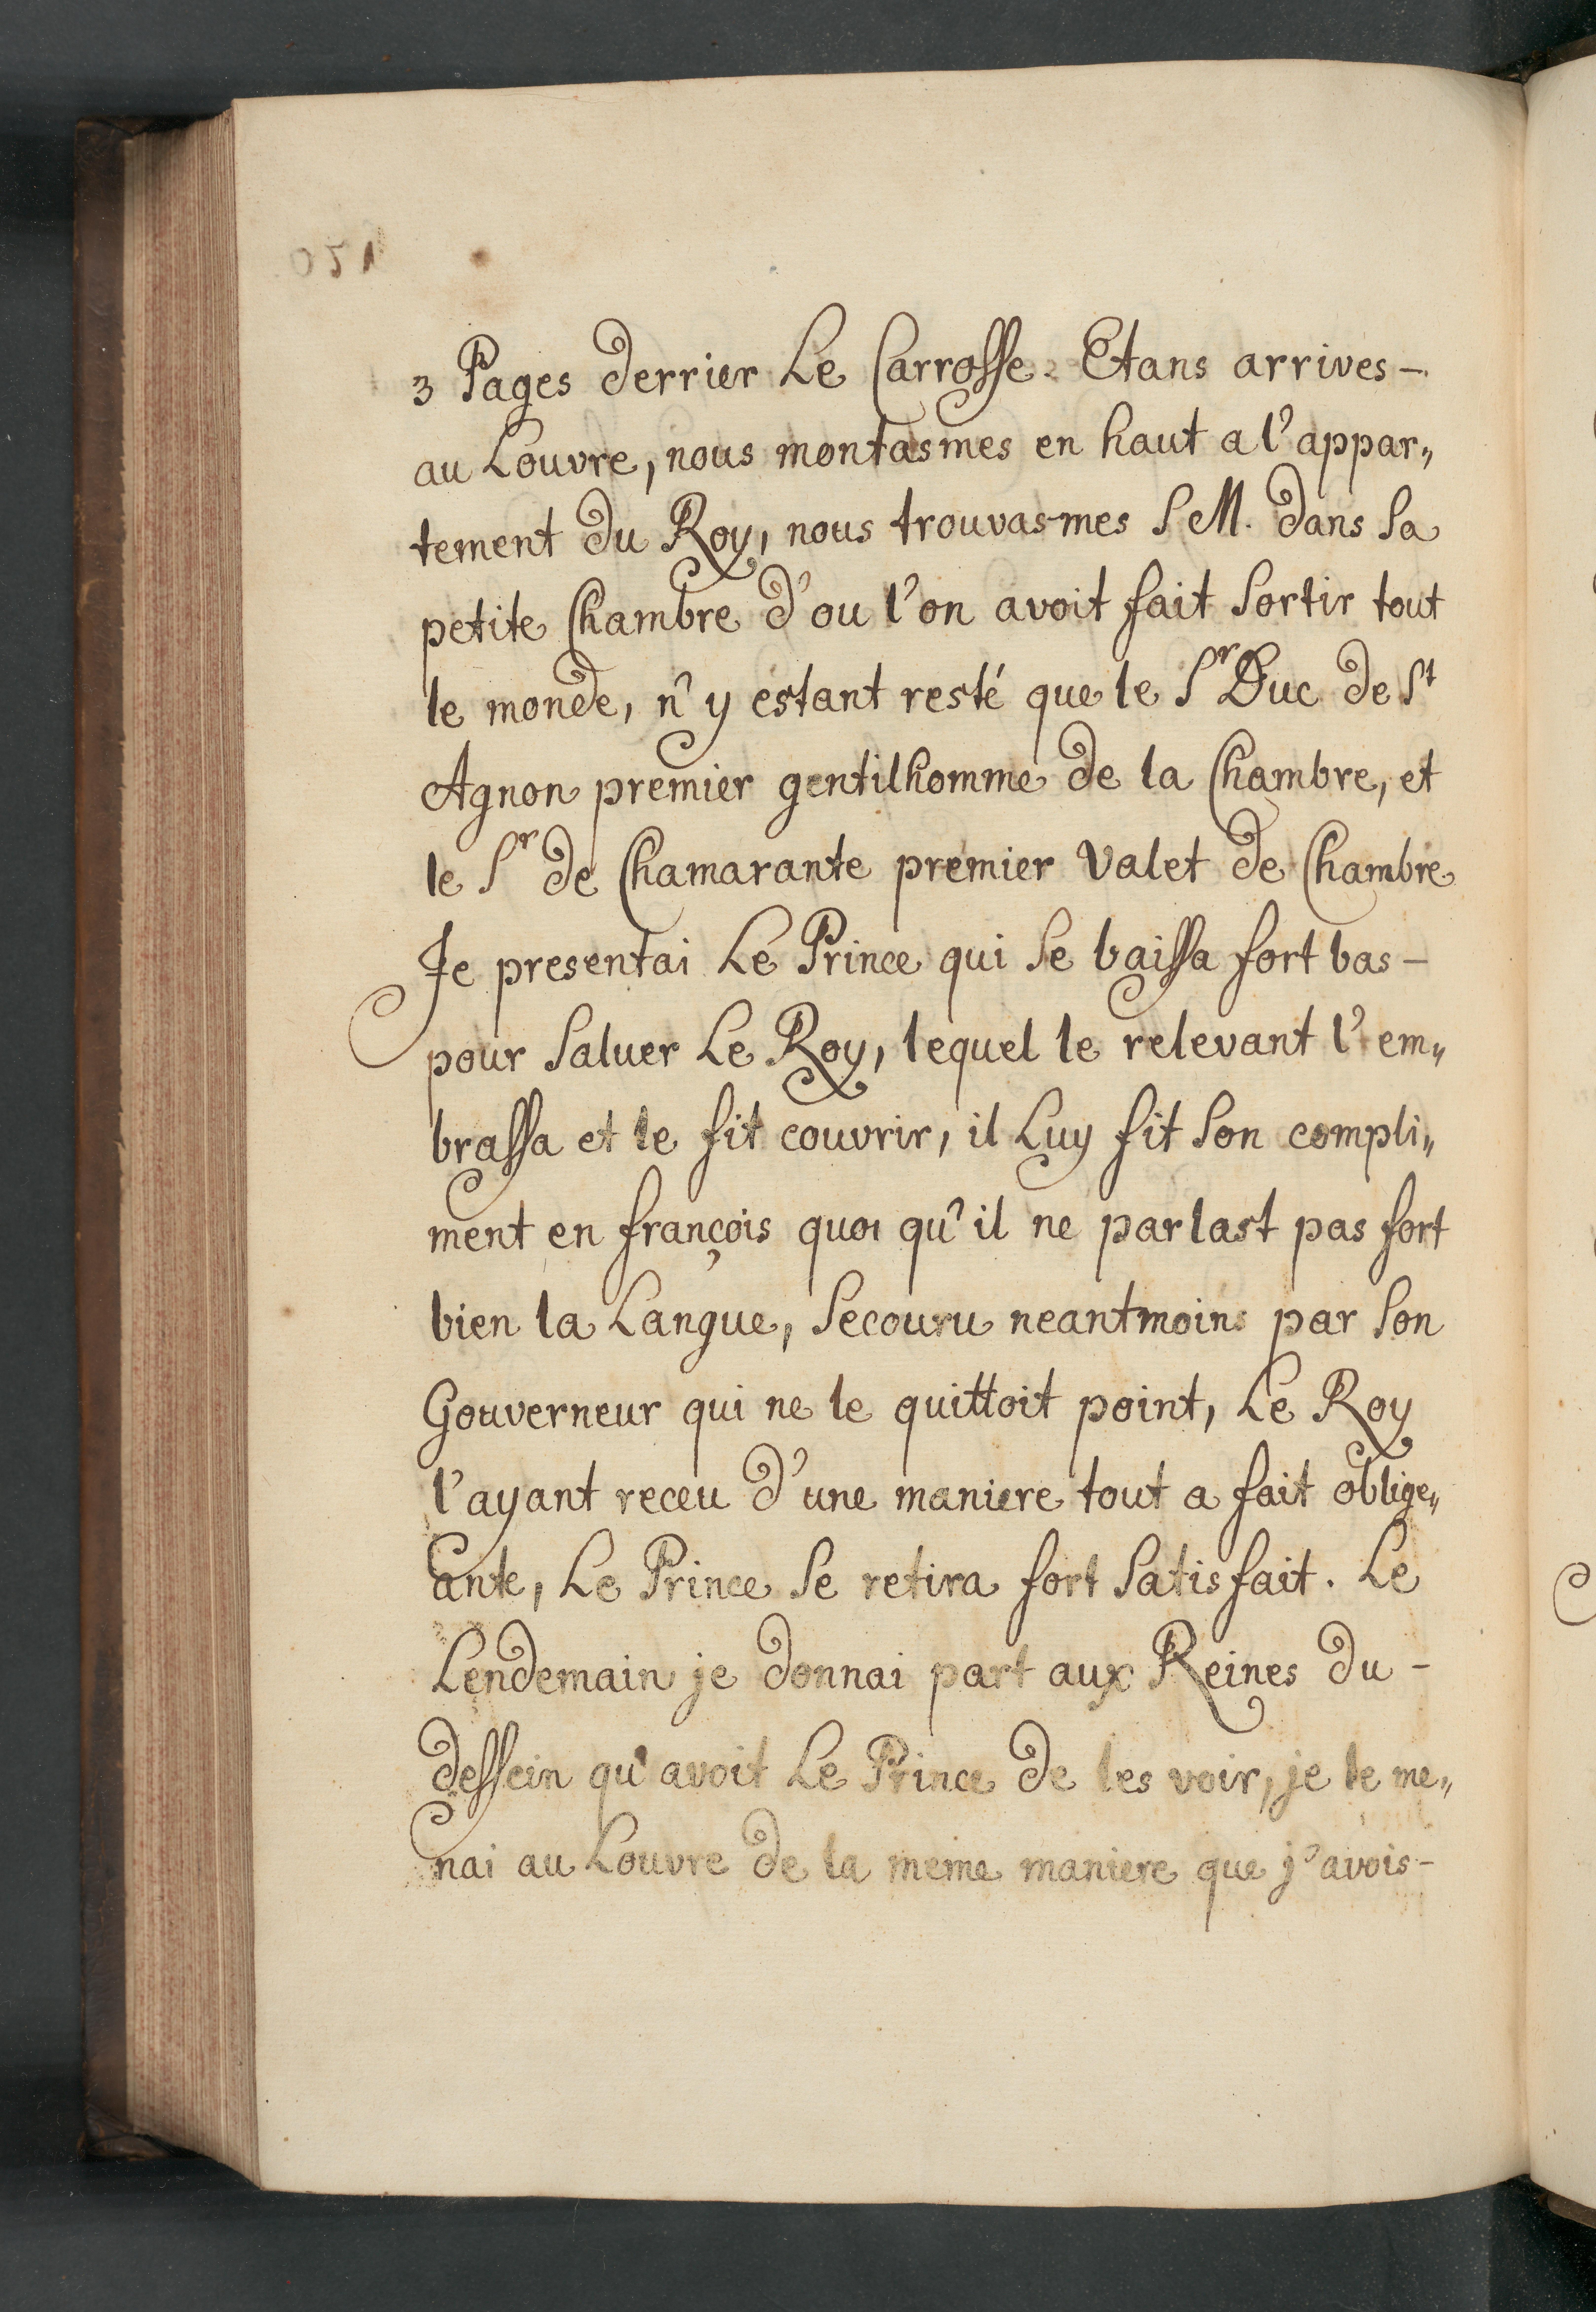 3 Pages derrier Le Carrosse. Etans arrives -
au Louvre, nous montasmes en haut a l'appar„
tement du Roy, nous trouvasmes S M. dans Sa
petite Chambre d'ou l'on avoit fait Sortir tout
le monde, n'y estant resté que le Sr Duc de St
Agnon premier gentilhomme de la Chambre, et
le Sr de Chamarante premier Valet de Chambre
Je presentai Le Prince qui Se baissa fort bas -
pour Saluer Le Roy, lequel le relevant l'em„
brassa et le fit couvrir, il Luy fit Son compli„
ment en françois quoi qu'il ne parlast pas fort
bien la Langue, Secouru neantmoins par Son
Gouverneur qui ne le quittoit point, Le Roy
l'ayant receu d'une maniere tout a fait oblige„
ante, Le Prince Se retira fort Satisfait. Le
Lendemain je donnai part aux Reines du -
dessein qu'avoit Le Prince de les voir, je le me„
nai au Louvre de la meme maniere que j'avois -